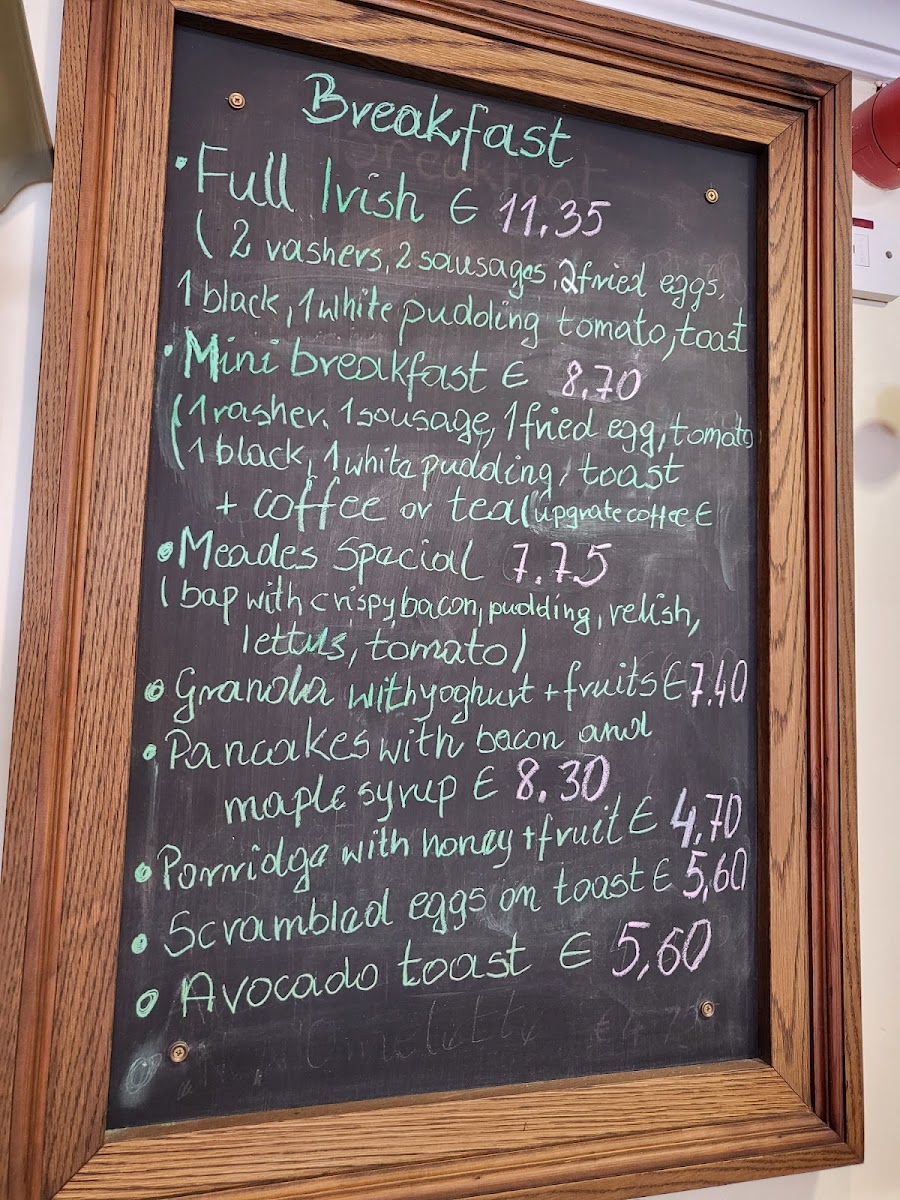 Breakfast
• Full Irish € 11.35
( 2 rashers, 2 sausages, 2 fried eggs,
1 black, 1 white pudding tomato, toast
• Mini breakfast € 8,70
( 1 rasher, 1 sausage, 1 fried egg, tomato
( 1 black, 1 white pudding, toast
+ coffee or tea ( upgrate coffee €
• Meades Special 7.75
( bap with crispy bacon, pudding, relish,
lettus, tomato )
• Granola with yoghurt + fruits € 7.40
• Pancakes with bacon and
maple syrup € 8.30
• Porridge with honey + fruit € 4,70
• Scrambled eggs on toast € 5,60
• Avocado toast € 5,60